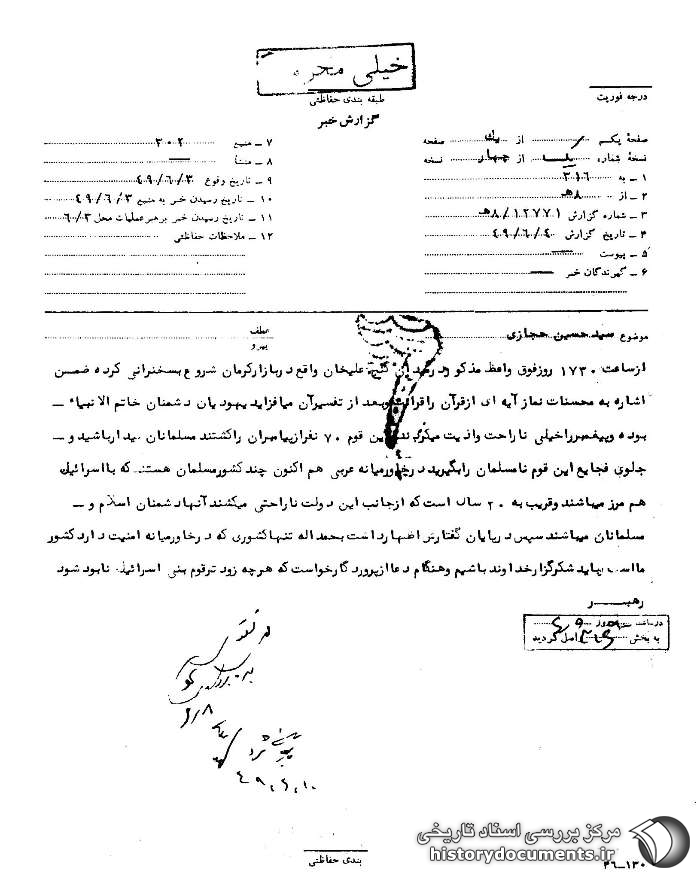 خیلی محرمانه
طبقه بندی حفاظتی
گزارش خبر
درجه فوریت
صفحهٔ یکم از یك صفحه
نسخهٔ شماره از چهار نسخه
۱ – به ۳۱۶
۲ – از ۸ﻫ
۳ – شماره گزارش ۱۲۷۷۱/۸ﻫ
۴ – تاریخ گزارش ۴۹/۶/۴
۵ – پیوست —
۶ – گیرندگان خبر —
۷ – منبع ۳۰۲
۸ – منشأ —
۹ – تاریخ وقوع ۴۹/۶/۳
۱۰ – تاریخ رسیدن خبر به منبع ۴۹/۶/۳
۱۱ – تاریخ رسیدن خبر برهبر عملیات محل ۶/۳
۱۲ – ملاحظات حفاظتی
موضوع سید حسین حجازی
عطف
پیرو
ازساعت ۱۷۳۰ روزفوق واعظ مذکور در علیخان واقع در بازار کرمان شروع بسخنرانی کرده ضمن
اشاره به محسنات نماز آیه ای ازقرآن را قرائت و بعد از تفسیرآن میافزاید یهودیان دشمنان خاتم الانبیاء –
بوده وپیغمبرراخیلی ناراحت واذیت میکردند این قوم ۷۰ نفرازپیامبران راکشتند مسلمانان بیدارباشید و –
جلوی فجایع این قوم نامسلمان رابگیرید درخاورمیانه عربی هم اکنون چند کشورمسلمان هستند که بااسرائیل
هم مرز میباشند وقریب به ۲۰ سال است که ازجانب این دولت ناراحتی میکشند آنها دشمنان اسلام و –
مسلمانان میباشند سپس درپایان گفتارش اظهارداشت بحمداله تنها کشوری که درخاورمیانه امنیت دارد کشور
مااست باید شکرگزارخداوند باشیم وهنگام دعا ازپروردگارخواست که هرچه زودتر قوم بنی اسرائیل نابود شود
رهبر
درساعت روز
به بخش ۳۱۶ واصل گردید
۶/۸
۴۹.۶.۱۰
بندی حفاظتی
۲۶–۱۳۰
مرکز بررسی اسناد تاریخی
historydocuments.ir